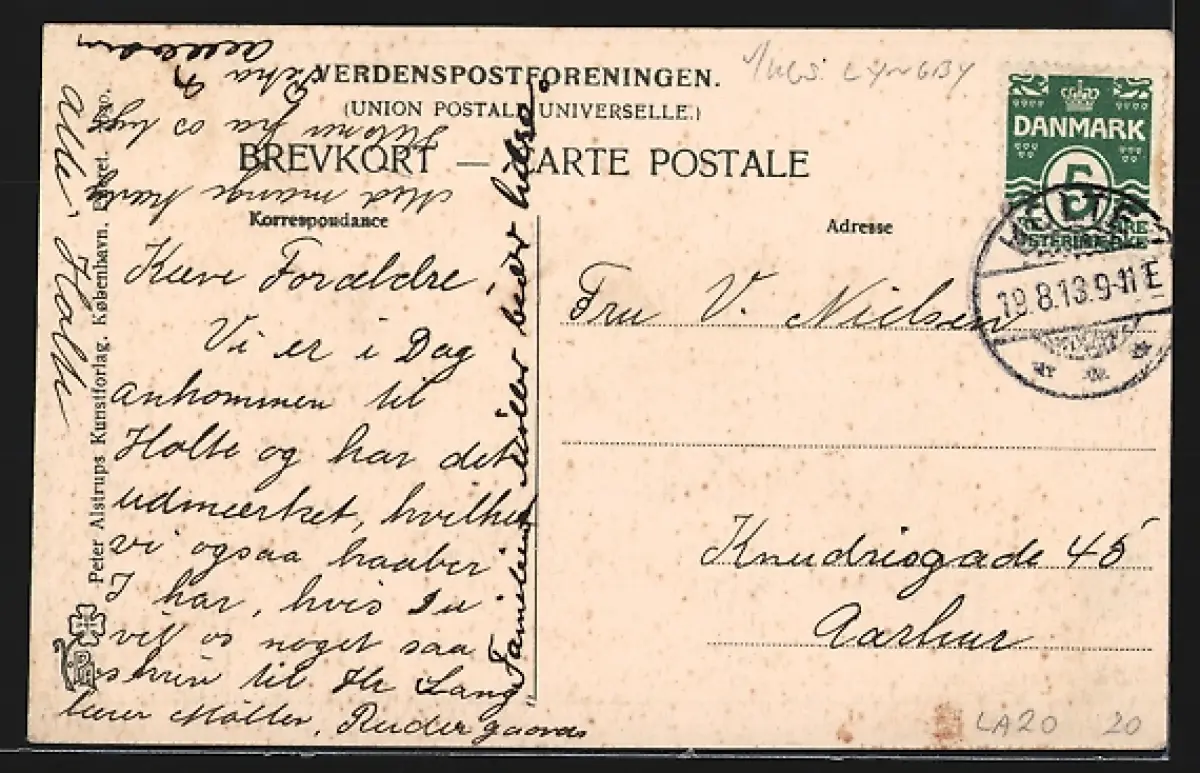 VERDENSPOSTFORENINGEN.
(UNION POSTALE UNIVERSELLE.)
BREVKORT — CARTE POSTALE
Korrespondance
Adresse
Kære Forældre
Vi er i Dag
ankommen til
Holte og har det
udmærket, hvilket
vi ogsaa haaber
I har, hvis Du
vil os noget saa
skriv til Hr Lang
Møller, Rudergaards
Familien Møller beder hilse
alle i Holte
Med mange
fra os
Fru V. Nielsen
Knudrisgade 45
Aarhus
DANMARK
5
HOLTE
19.8.13.9-11E
Peter Alstrups Kunstforlag. København. Eneret.
LYNGBY
LA20 20